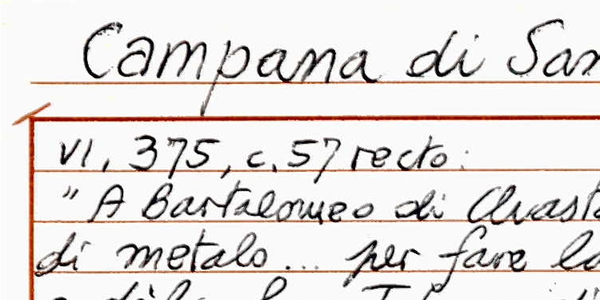 Campana di San
VI, 375, c. 57 recto:
" A Bartalomeo di
di metalo... per fare la